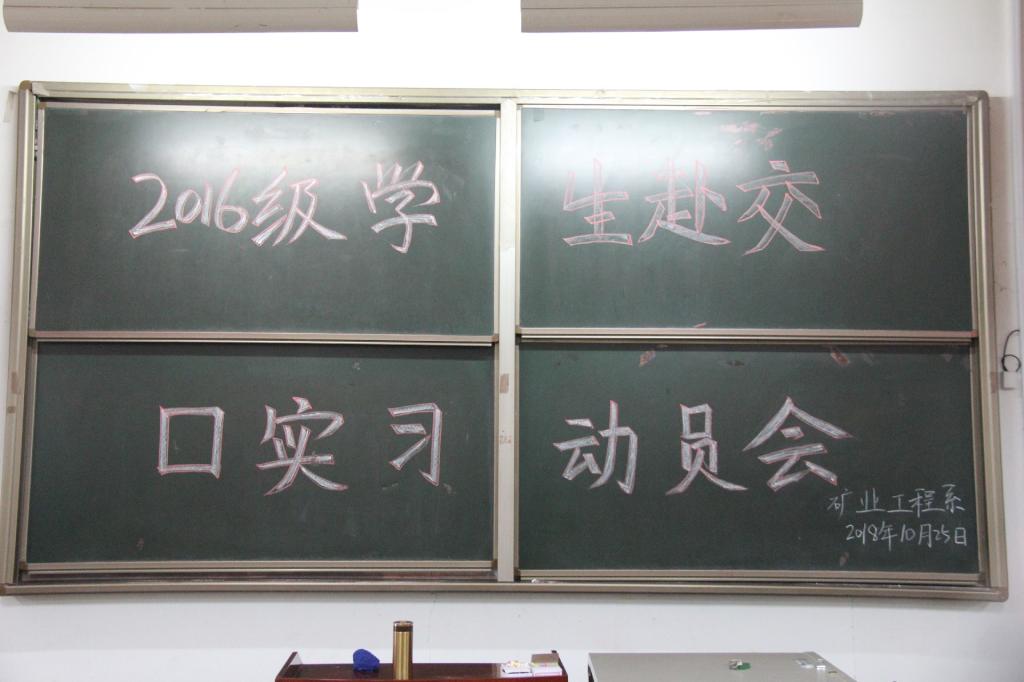 2016级学生赴交
口实习动员会
矿业工程系
2018年10月25日